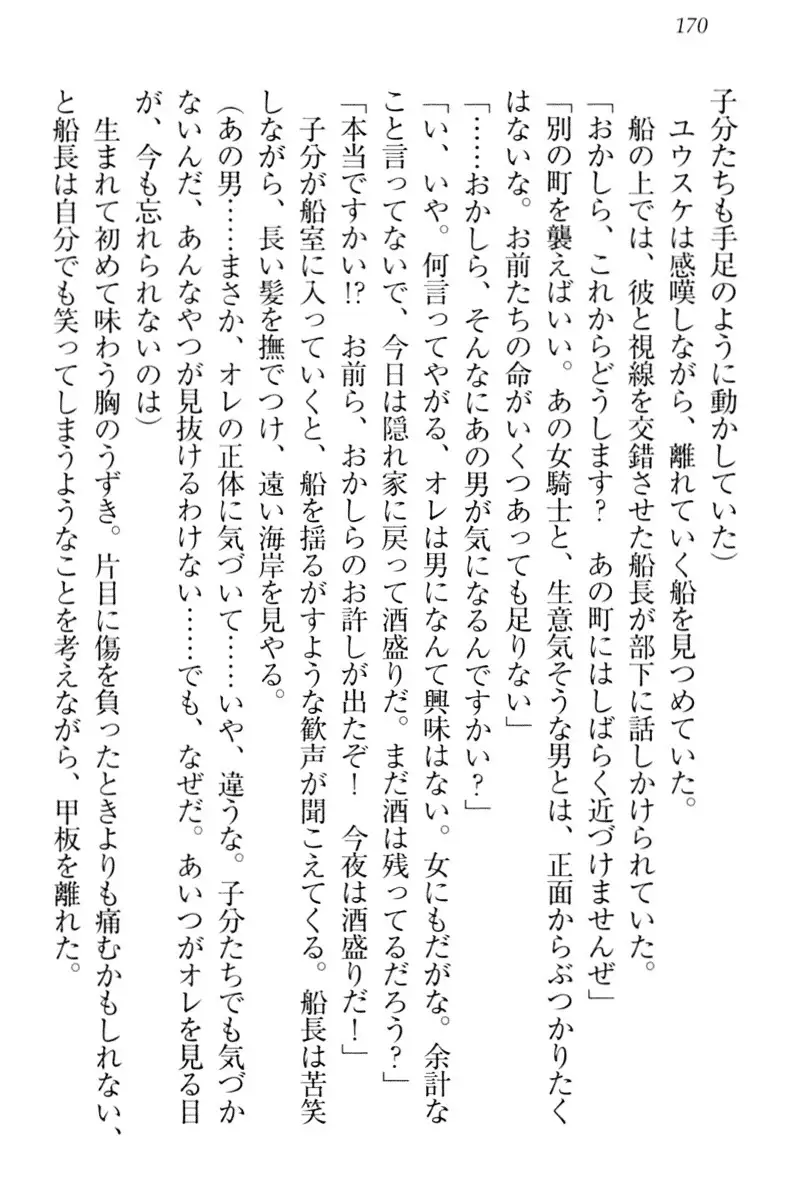 170
子分たちも手足のように動かしていた)
　ユウスケは感嘆しながら、離れていく船を見つめていた。
　船の上では、彼と視線を交錯させた船長が部下に話しかけられていた。
「おかしら、これからどうします?　あの町にはしばらく近づけませんぜ」
「別の町を襲えばいい。あの女騎士と、生意気そうな男とは、正面からぶつかりたく
はないな。お前たちの命がいくつあっても足りない」
「……おかしら、そんなにあの男が気になるんですかい?」
「い、いや。何言ってやがる、オレは男になんて興味はない。女にもだがな。余計な
こと言ってないで、今日は隠れ家に戻って酒盛りだ。まだ酒は残ってるだろう?」
「本当ですかい!?　お前ら、おかしらのお許しが出たぞ!　今夜は酒盛りだ!」
　子分が船室に入っていくと、船を揺るがすような歓声が聞こえてくる。船長は苦笑
しながら、長い髪を撫でつけ、遠い海岸を見やる。
(あの男……まさか、オレの正体に気づいて……いや、違うな。子分たちでも気づか
ないんだ、あんなやつが見抜けるわけない……でも、なぜだ。あいつがオレを見る目
が、今も忘れられないのは)
　生まれて初めて味わう胸のうずき。片目に傷を負ったときよりも痛むかもしれない、
と船長は自分でも笑ってしまうようなことを考えながら、甲板を離れた。